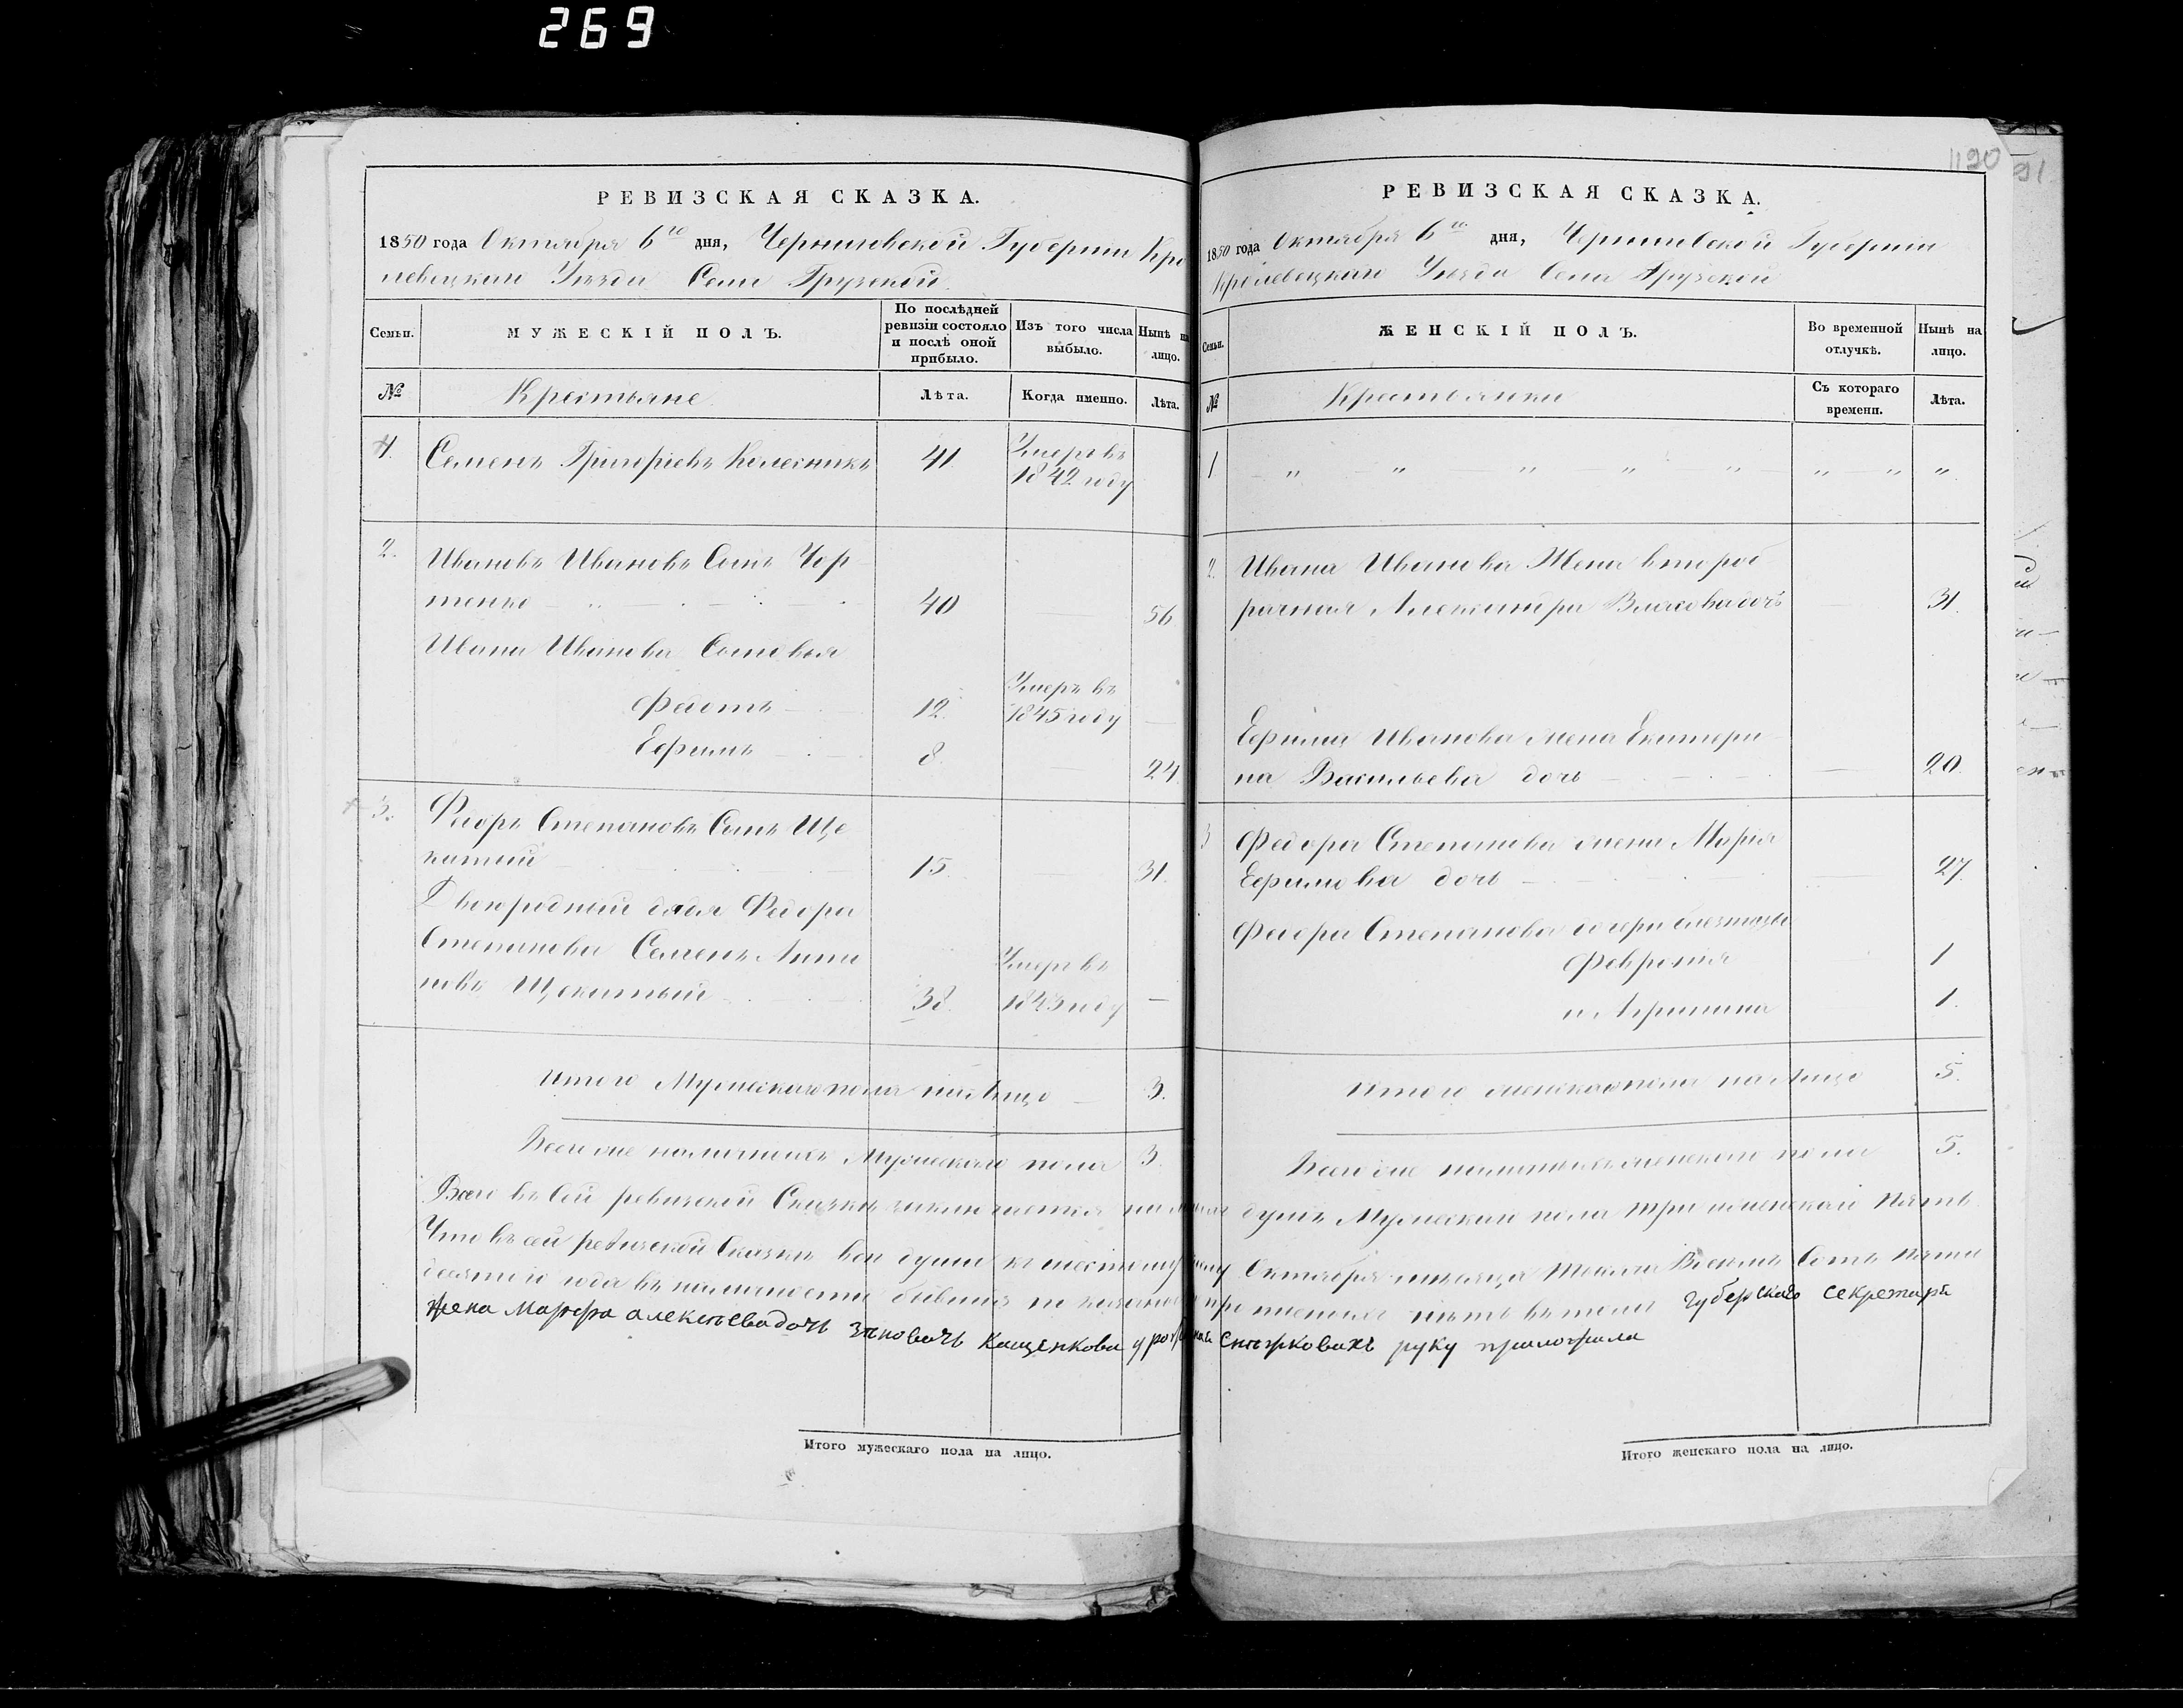 269
РЕВИЗСКАЯ СКАЗКА.
1850 года Октября 6го дня, Черниговской Губернии Кро
левецкаго Уезда Села Грузской
Семьи. МУЖЕСКІЙ ПОЛЪ. По послѣдней ревизіи состояло и послѣ оной прибыло. Изъ того числа выбыло. Нынѣ на лицо.
№ Крестьяне Лѣта. Когда именно. Лѣта.
1. Семенъ Григорьевъ Колесникъ 41 Умеръ въ
1842 году
2. Ивановъ Ивановъ Сынъ Чор
тенко 40 56
Ивана Иванова Сыновья
Фелстъ 12. Умеръ въ
1845 году
Ефимъ 8. 24
3. Федоръ Степановъ Сынъ Ще
катый 15. 31.
Двоюродный дядя Федора
Степанова Семенъ Анти
повъ Щекатый 38. Умеръ въ
1843 году
Итого Мужескаго пола на лицо 3.
Всего же наличныхъ Мужескаго пола 3
1190
91
РЕВИЗСКАЯ СКАЗКА.
1850 года Октября 6го дня, Черниговской Губерніи
Кролевецкаго Уезда Села Грузской
Семьи. ЖЕНСКІЙ ПОЛЪ. Во временной отлучкѣ. Нынѣ на лицо.
№ Крестьянки Съ котораго времени. Лѣта.
1 " " " " " " " "
2. Ивана Иванова Жена второб
рачная Александра Власова дочь 31.
Ефима Иванова жена Екатери
на Васильева дочь 20.
3 Федора Степанова жена Марія
Ефимова дочь 27.
Федора Степанова дочери близнецы
Феврония 1
и Агрипина 1.
Итого женскаго пола на лицо 5.
Всего же наличныхъ женскаго пола 5.
Всего въ сей ревизской Сказки заключается на лицо душъ Мужескаго пола три женскаго пять
Что въ сей ревизской Сказкѣ все души къ шестому дню Октября месяца тысяча Восемь Сотъ пяти
десятого года въ наличности бывшие показаны и прописныхъ нѣтъ въ томъ губерскаго секретаря
жена Марфа алексѣева дочь Зѣновичъ Кащенкова урожденная Снежковихъ руку приложила
Итого мужескаго пола на лицо.
Итого женскаго пола на лицо.